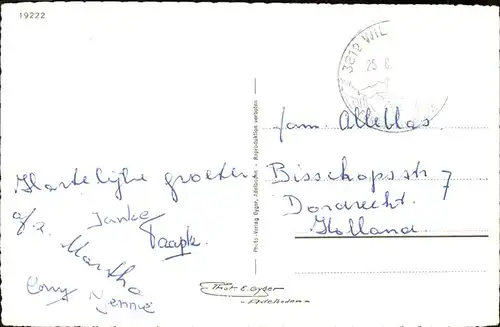 19222
3812 WIL
25.
fam. Alleblas
Hartelijke groeten
Bisschopsstr 7
Dordrecht.
Holland
a/z.
Janke
Martha
Corry Jennie
Photo-Verlag Gyger, Adelboden - Reproduktion verboten
Phot. E. Gyger
Adelboden